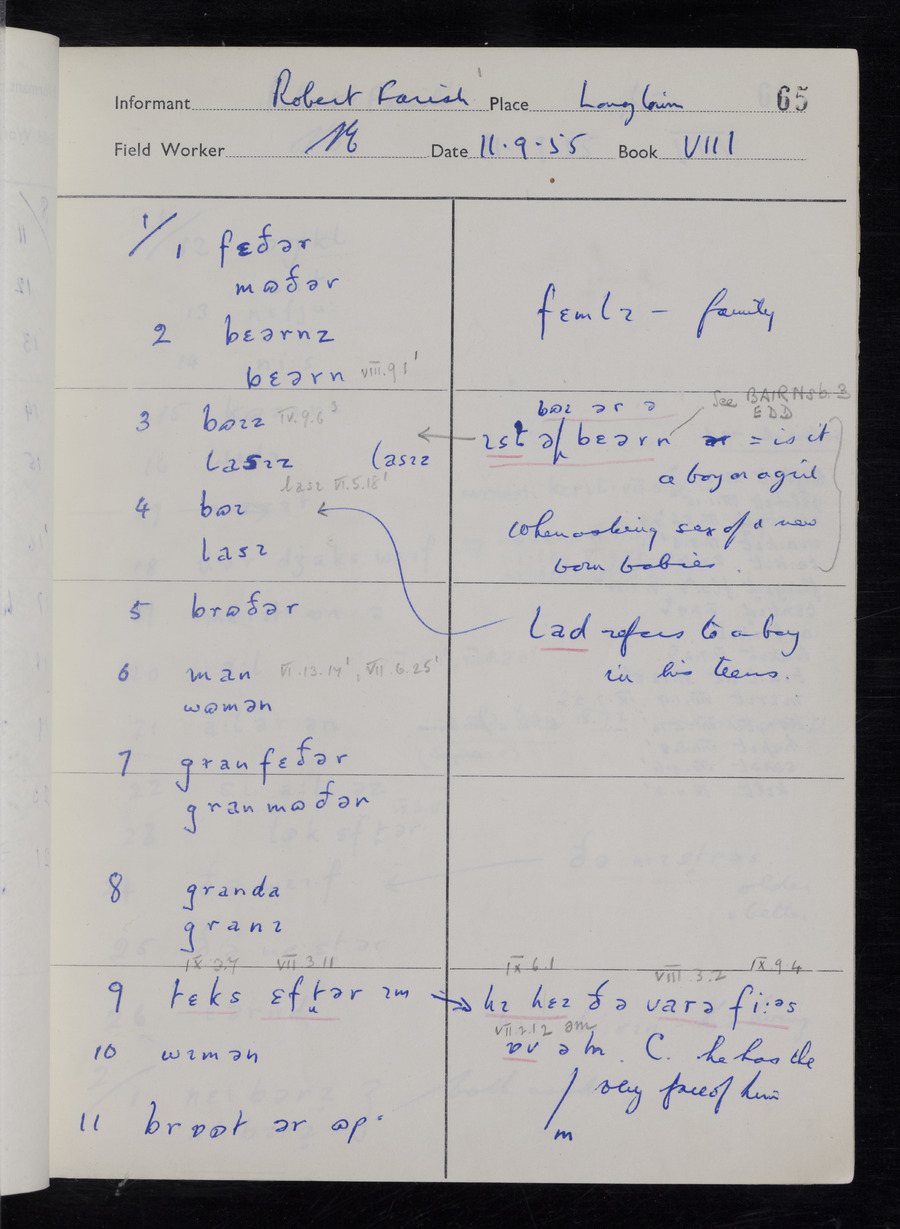 Informant Robert Farish Place Longtown 65
Field Worker Date 11·9·55 Book VIII
1/ 1 fɛðər
mɷðər
2 bɛərnz
bɛərn VIII.9 1'
femlɪ – family
3 bɷɪz IV.9.6³
lasɪz lasɪz
lasɪ VI.5.18'
4 bɷɪ
lasɪ
See BAIRN sb. 3
EDD
bɷɪ ər ə
bɛərn = is it
a boy or a girl
when asking sex of a new
born babies.
5 brɷðər
Lad refers to a boy
in his teens.
6 man VI.13.14', VII.6.25'
wɷmən
7 granfɛðər
granmɷðər
8 granda
granɪ
IX 3.7 VII 3 11
9 tɛks ɛftər ɪm
IX 6.1 VIII 3.2 IX.9 4
hɪ hɛz ðə varə fi:əs
VII 2.12 əm
ɒv ə m. C. he has the
very face of him
m
10 wɪmən
11 brɒɒt ər ɷp·